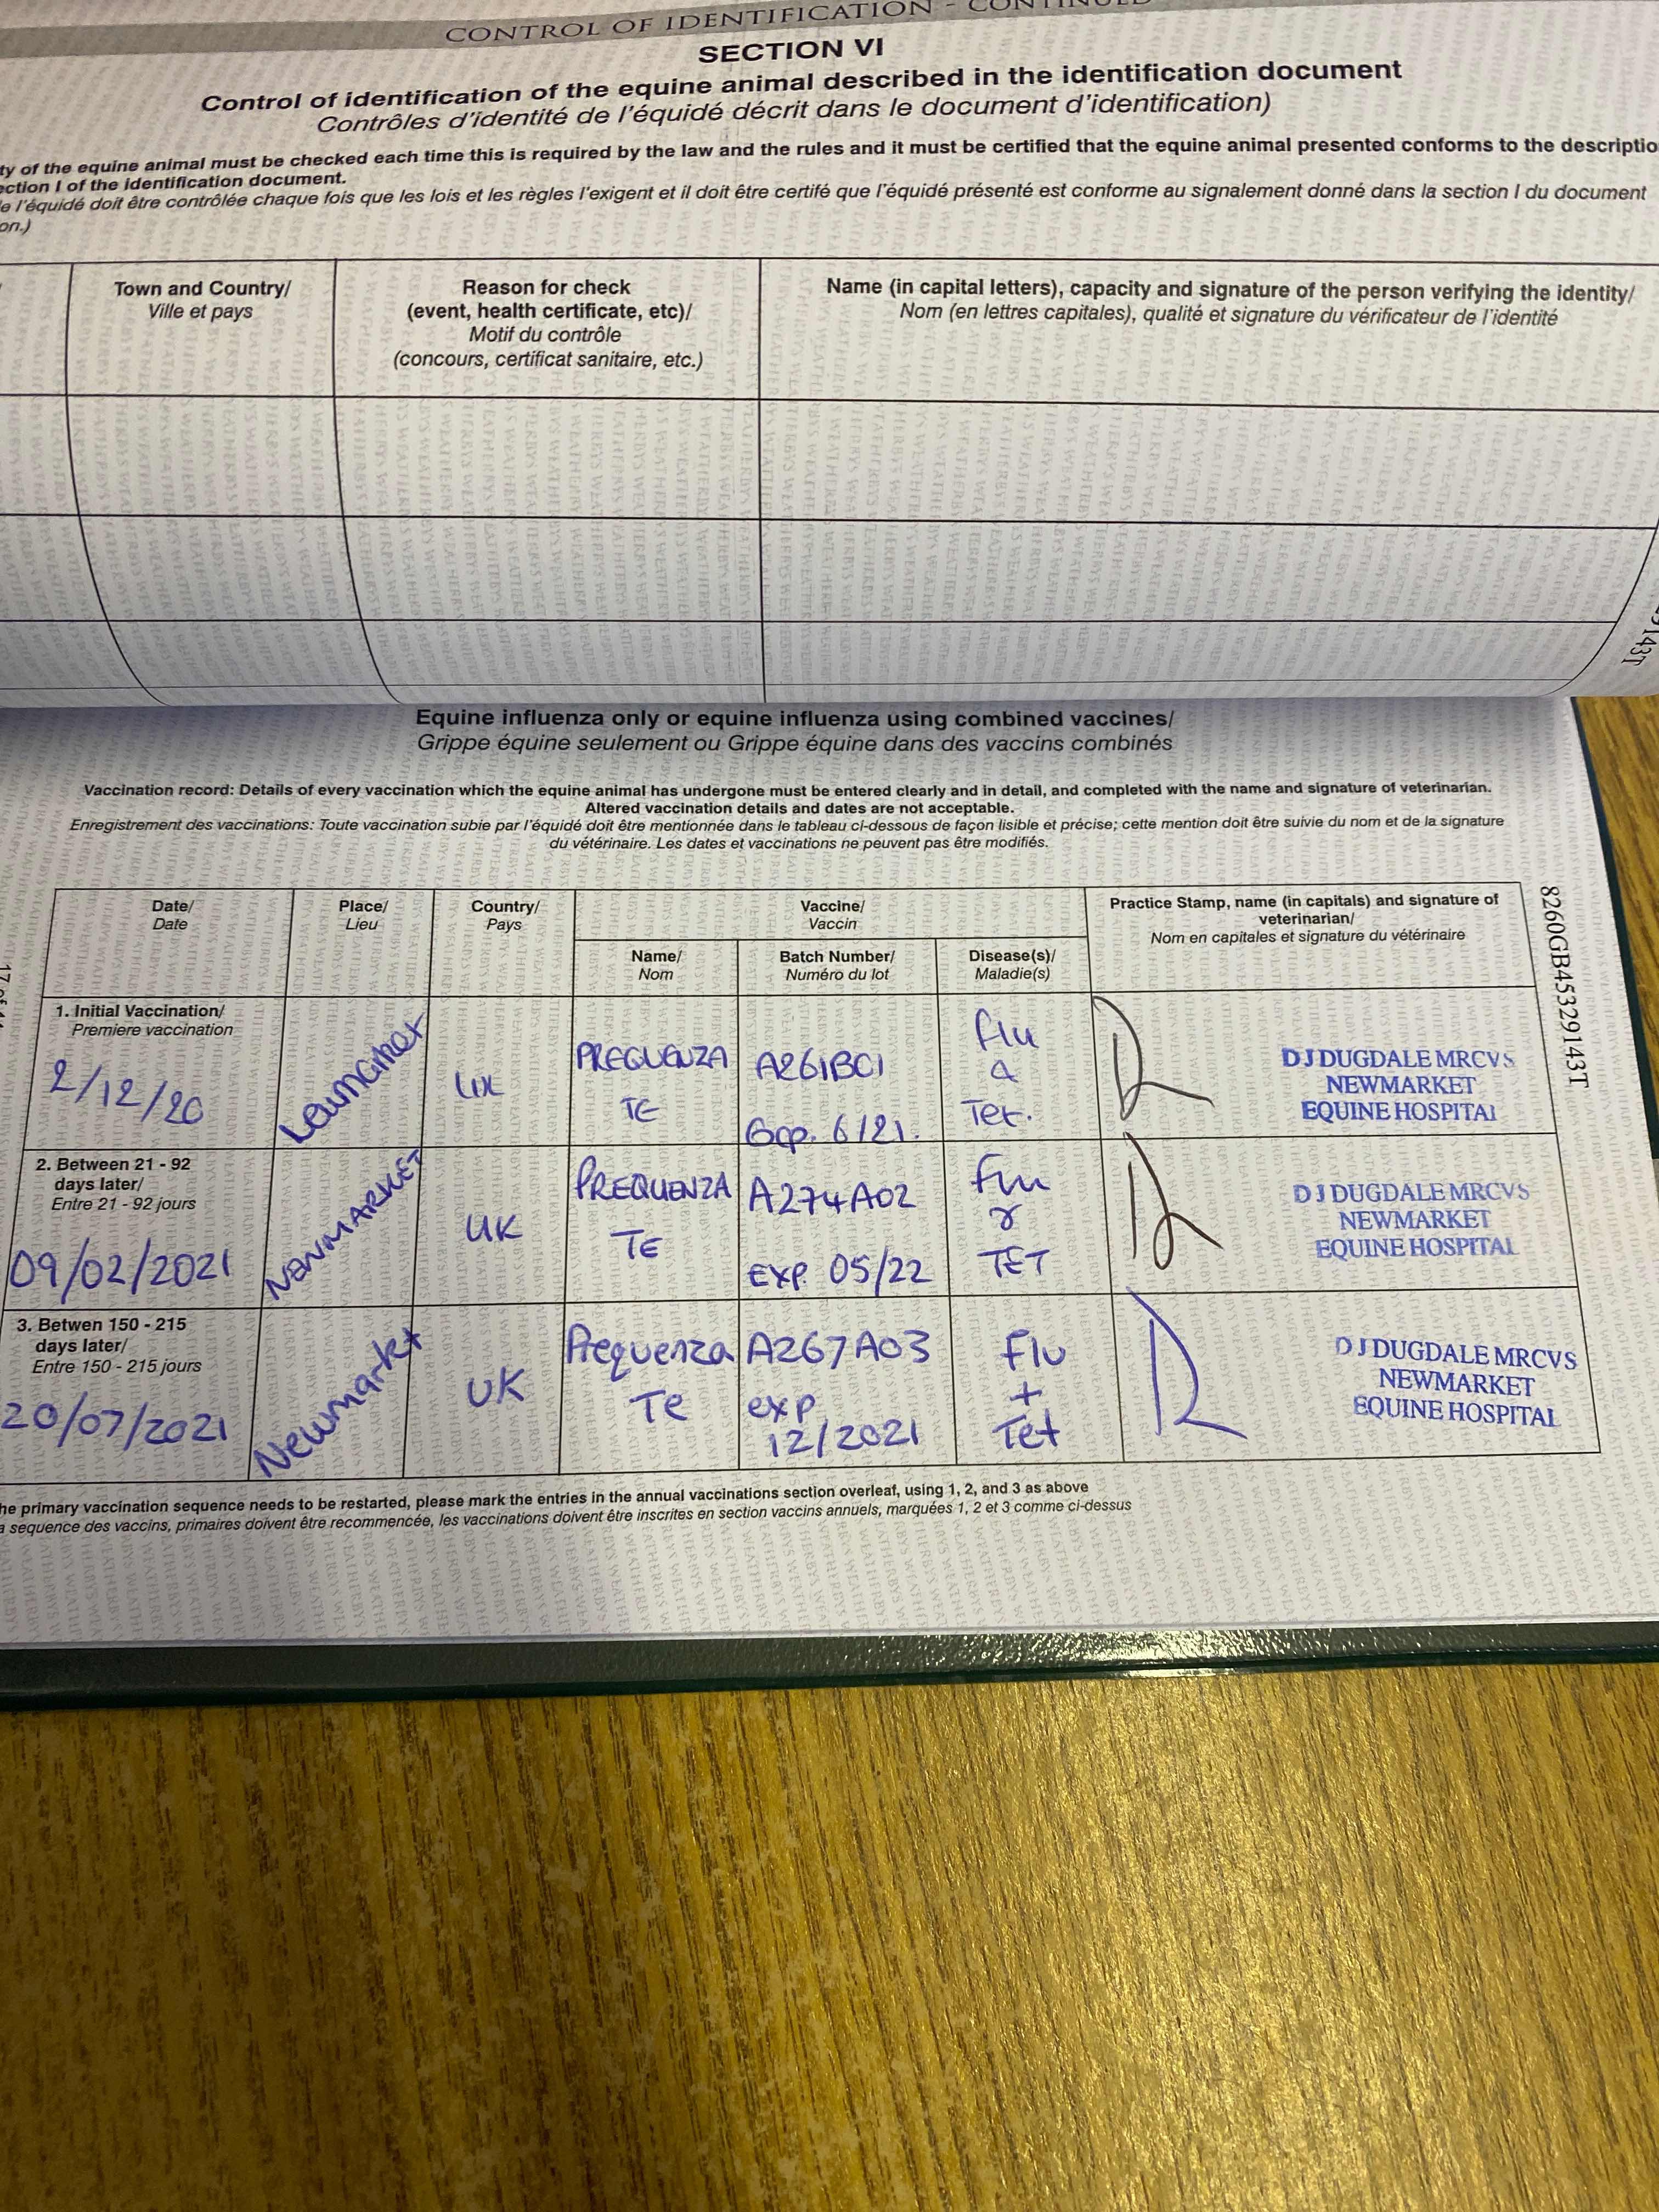 CONTROL OF IDENTIFICATION - CONTINUED
SECTION VI
Control of identification of the equine animal described in the identification document
Contrôles d'identité de l'équidé décrit dans le document d'identification)
ty of the equine animal must be checked each time this is required by the law and the rules and it must be certified that the equine animal presented conforms to the descriptio
ection I of the identification document.
e l'équidé doit être contrôlée chaque fois que les lois et les règles l'exigent et il doit être certifé que l'équidé présenté est conforme au signalement donné dans la section I du document
on.)
Town and Country/
Ville et pays
Reason for check
(event, health certificate, etc)/
Motif du contrôle
(concours, certificat sanitaire, etc.)
Name (in capital letters), capacity and signature of the person verifying the identity/
Nom (en lettres capitales), qualité et signature du vérificateur de l'identité
Equine influenza only or equine influenza using combined vaccines/
Grippe équine seulement ou Grippe équine dans des vaccins combinés
Vaccination record: Details of every vaccination which the equine animal has undergone must be entered clearly and in detail, and completed with the name and signature of veterinarian.
Altered vaccination details and dates are not acceptable.
Enregistrement des vaccinations: Toute vaccination subie par l'équidé doit être mentionnée dans le tableau ci-dessous de façon lisible et précise; cette mention doit être suivie du nom et de la signature
du vétérinaire. Les dates et vaccinations ne peuvent pas être modifiés.
Date/
Date
Place/
Lieu
Country/
Pays
Vaccine/
Vaccin
Name/
Nom
Batch Number/
Numéro du lot
Disease(s)/
Maladie(s)
Practice Stamp, name (in capitals) and signature of
veterinarian/
Nom en capitales et signature du vétérinaire
1. Initial Vaccination/
Premiere vaccination
2/12/20
Newmarket
UK
PREQUENZA
TE
A261BC1
Exp. 6/21.
Flu
&
Tet.
DJ DUGDALE MRCVS
NEWMARKET
EQUINE HOSPITAL
2. Between 21 - 92
days later/
Entre 21 - 92 jours
09/02/2021
NEWMARKET
UK
PREQUENZA
TE
A274A02
EXP. 05/22
Flu
&
TET
D J DUGDALE MRCVS
NEWMARKET
EQUINE HOSPITAL
3. Betwen 150 - 215
days later/
Entre 150 - 215 jours
20/07/2021
Newmarket
UK
Prequenza
Te
A267A03
exp
12/2021
Flu
+
Tet
D J DUGDALE MRCVS
NEWMARKET
EQUINE HOSPITAL
8260GB45329143T
he primary vaccination sequence needs to be restarted, please mark the entries in the annual vaccinations section overleaf, using 1, 2, and 3 as above
a sequence des vaccins, primaires doivent être recommencée, les vaccinations doivent être inscrites en section vaccins annuels, marquées 1, 2 et 3 comme ci-dessus